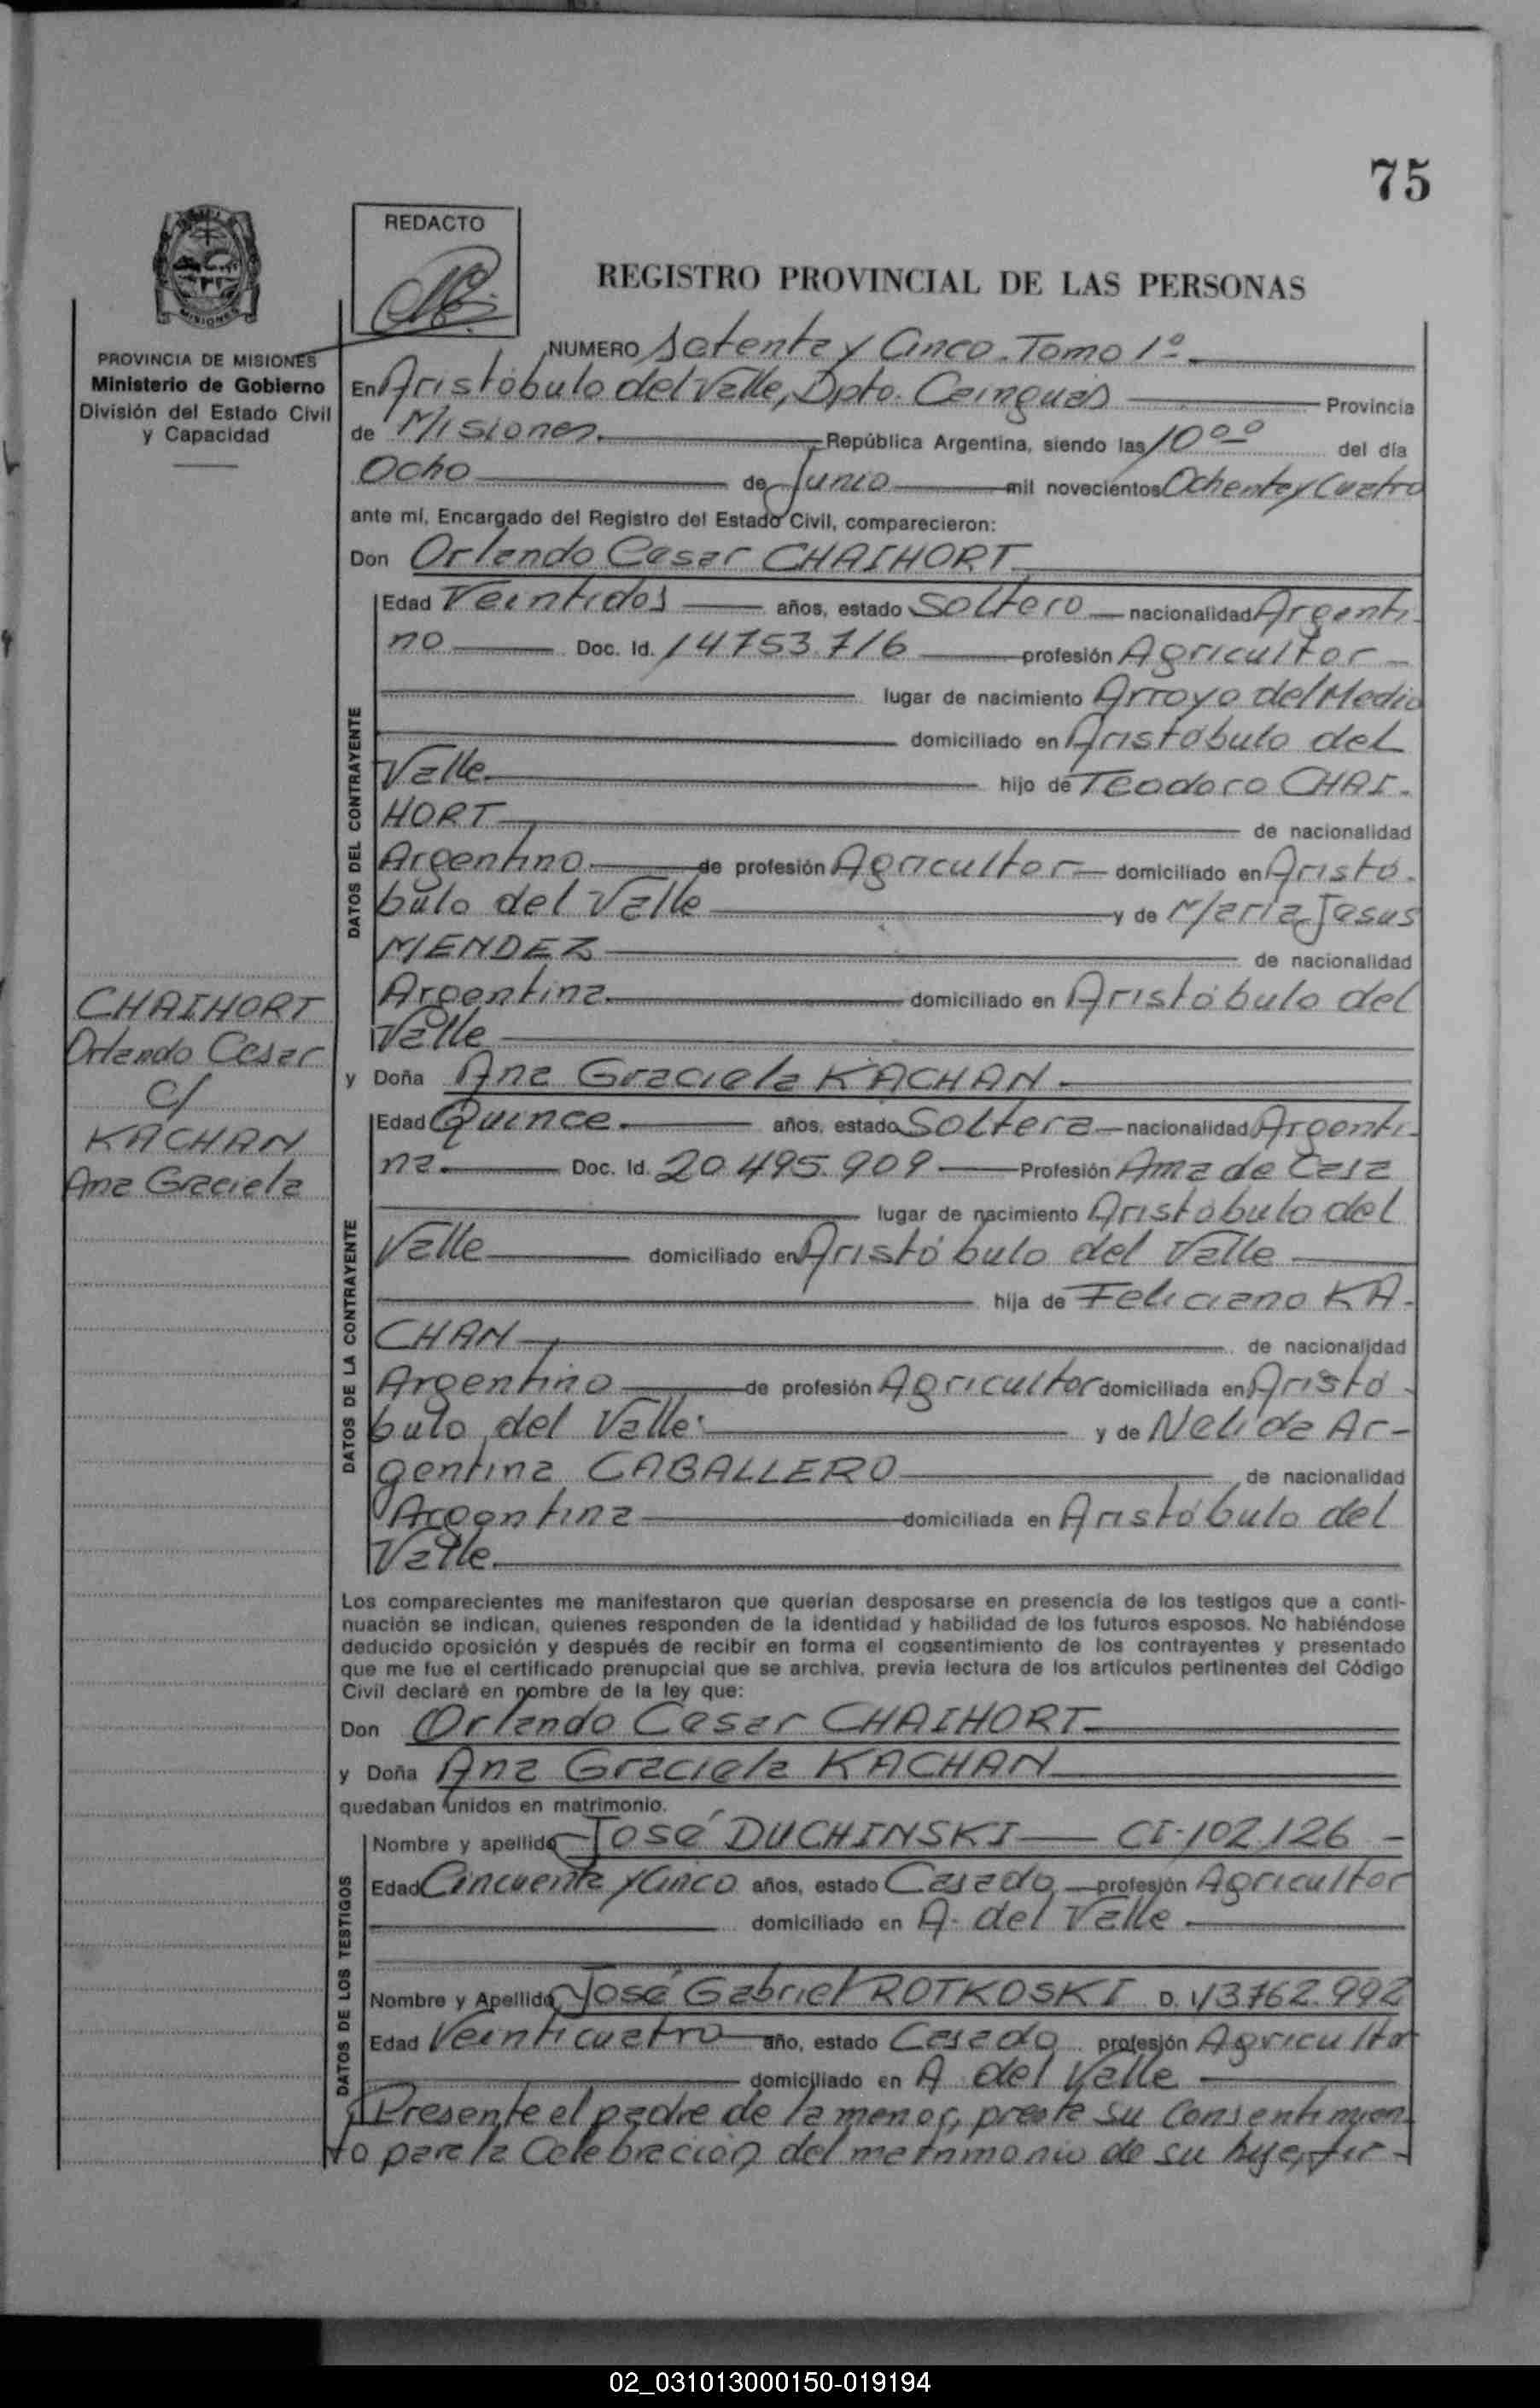 75
REDACTO
REGISTRO PROVINCIAL DE LAS PERSONAS
MISIONES
PROVINCIA DE MISIONES
Ministerio de Gobierno
División del Estado Civil
y Capacidad
NUMERO Setenta y Cinco. Tomo 1º
En Aristóbulo del Valle, Dpto. Cainguás Provincia
de Misiones. República Argentina, siendo las 10 00 del día
Ocho de Junio mil novecientos Ochenta y Cuatro
ante mí, Encargado del Registro del Estado Civil, comparecieron:
Don Orlando Cesar CHAIHORT
DATOS DEL CONTRAYENTE
Edad Veintidos años, estado Soltero nacionalidad Argenti-
no Doc. Id. 14753.716 profesión Agricultor
lugar de nacimiento Arroyo del Medio
domiciliado en Aristóbulo del
Valle. hijo de Teodoro CHAI-
HORT de nacionalidad
Argentino de profesión Agricultor domiciliado en Aristó-
bulo del Valle y de María Jesus
MENDEZ de nacionalidad
Argentina. domiciliado en Aristóbulo del
Valle
CHAIHORT
Orlando Cesar
c/
KACHAN
Ana Graciela
y Doña Ana Graciela KACHAN.
DATOS DE LA CONTRAYENTE
Edad Quince. años, estado Soltera nacionalidad Argenti-
na. Doc. Id. 20.495.909 Profesión Ama de Casa
lugar de nacimiento Aristóbulo del
Valle domiciliado en Aristóbulo del Valle
hija de Feliciano KA-
CHAN de nacionalidad
Argentino de profesión Agricultor domiciliada en Aristó-
bulo del Valle. y de Nelida Ar-
gentina CABALLERO de nacionalidad
Argentina domiciliada en Aristóbulo del
Valle.
Los comparecientes me manifestaron que querían desposarse en presencia de los testigos que a conti-
nuación se indican, quienes responden de la identidad y habilidad de los futuros esposos. No habiéndose
deducido oposición y después de recibir en forma el consentimiento de los contrayentes y presentado
que me fue el certificado prenupcial que se archiva, previa lectura de los artículos pertinentes del Código
Civil declaré en nombre de la ley que:
Don Orlando Cesar CHAIHORT
y Doña Ana Graciela KACHAN
quedaban unidos en matrimonio.
DATOS DE LOS TESTIGOS
Nombre y apellido José DUCHINSKI CI-102.126
Edad Cincuenta y Cinco años, estado Casado profesión Agricultor
domiciliado en A. del Valle
Nombre y Apellido José Gabriel ROTKOSKI D. 13762.992
Edad Veinticuatro año, estado Casado profesión Agricultor
domiciliado en A del Valle
Presente el padre de la menor, presta su Consentimien-
to para la Celebración del matrimonio de su hija, fir-
02_031013000150-019194